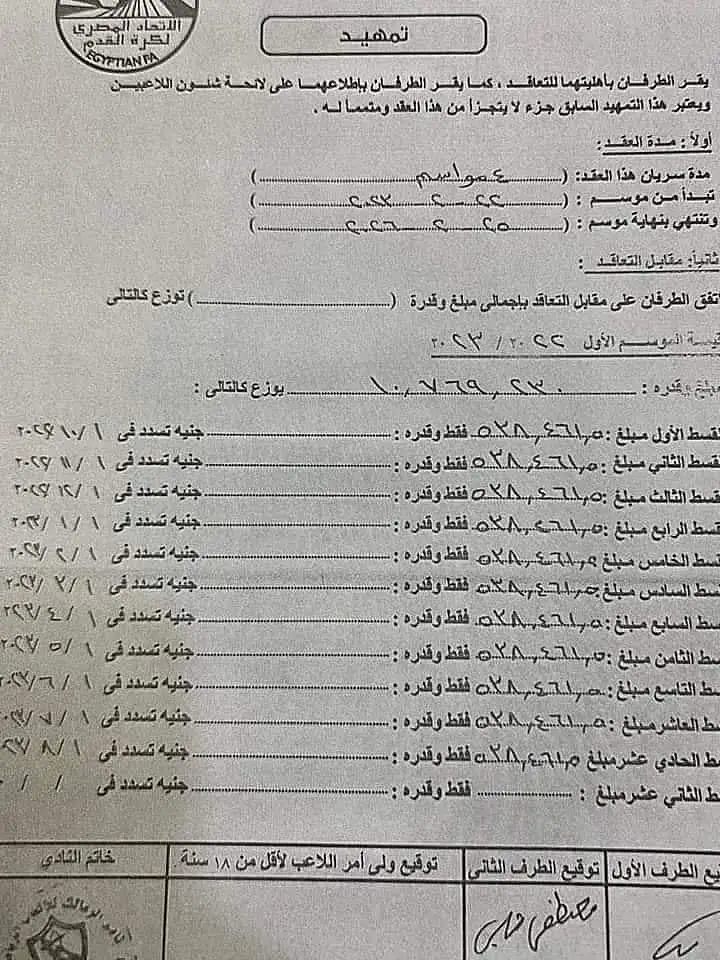 الاتحاد المصري
لكرة القدم
EGYPTIAN FA
تمهيد
يقر الطرفان بأهليتهما للتعاقد ، كما يقر الطرفان بإطلاعهما على لائحة شئون اللاعبين
ويعتبر هذا التمهيد السابق جزء لا يتجزأ من هذا العقد ومتمماً له .
أولاً : مدة العقد :
مدة سريان هذا العقد: (٤ مواسم)
تبدأ من موسم : (٢٠٢٢ ٢٠٢٣)
وتنتهي بنهاية موسم : (٢٠٢٥ ٢٠٢٦)
ثانياً: مقابل التعاقد :
اتفق الطرفان على مقابل التعاقد بإجمالى مبلغ وقدرة (..........) توزع كالتالى
الموسم الأول ٢٠٢٢ / ٢٠٢٣
مبلغ وقدره : ١٠,٧٦٩,٢٣٠ يوزع كالتالى :
قسط الأول مبلغ :٥٣٨,٤٦١,٥ فقط وقدره :.......... جنيه تسدد فى ١ /١٠ /٢٠٢٢
قسط الثاني مبلغ :٥٣٨,٤٦١,٥ فقط وقدره :.......... جنيه تسدد فى ١ /١١ /٢٠٢٢
قسط الثالث مبلغ :٥٣٨,٤٦١,٥ فقط وقدره :.......... جنيه تسدد فى ١ /١٢ /٢٠٢٢
قسط الرابع مبلغ :٥٣٨,٤٦١,٥ فقط وقدره :.......... جنيه تسدد فى ١ /١ /٢٠٢٣
سط الخامس مبلغ :٥٣٨,٤٦١,٥ فقط وقدره :.......... جنيه تسدد فى ١ /٢ /٢٠٢٣
سط السادس مبلغ :٥٣٨,٤٦١,٥ فقط وقدره :.......... جنيه تسدد فى ١ /٣ /٢٠٢٣
سط السابع مبلغ :٥٣٨,٤٦١,٥ فقط وقدره :.......... جنيه تسدد فى ١ /٤ /٢٠٢٣
سط الثامن مبلغ :٥٣٨,٤٦١,٥ فقط وقدره :.......... جنيه تسدد فى ١ /٥ /٢٠٢٣
سط التاسع مبلغ :٥٣٨,٤٦١,٥ فقط وقدره :.......... جنيه تسدد فى ١ /٦ /٢٠٢٣
سط العاشر مبلغ :٥٣٨,٤٦١,٥ فقط وقدره :.......... جنيه تسدد فى ١ /٧ /٢٠٢٣
سط الحادي عشرمبلغ :٥٣٨,٤٦١,٥ فقط وقدره :.......... جنيه تسدد فى ١ /٨ /٢٣
سط الثاني عشرمبلغ : .......... فقط وقدره :.......... جنيه تسدد فى / /
الطرف الأول توقيع الطرف الثانى توقيع ولى أمر اللاعب لأقل من ١٨ سنة خاتم النادي
مصطفى
نادي الزمالك للألعاب